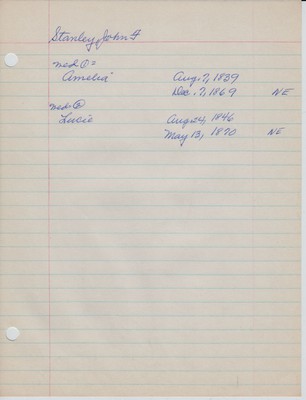 Stanley, John F
med ①=
Amelia Aug. 7, 1839
Dec. 7, 1869 NE
med ②
Lucie Aug 24, 1846
May 13, 1870 NE